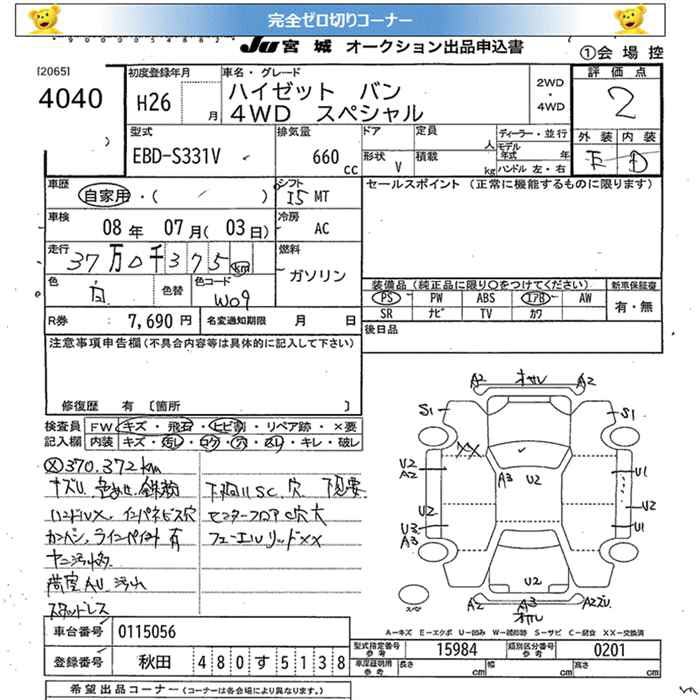 完全ゼロ切りコーナー
JU 宮城 オークション出品申込書
①会場控
[2065]
4040
初度登録年月
H26 月
車名・グレード
ハイゼット バン
4WD スペシャル
2WD・4WD
評価点
2
外装 内装
F D
型式
EBD-S331V
排気量
660 cc
ドア
形状 V
定員 人
積載 kg
ディーラー・並行
モデル年式 年
ハンドル 左・右
車歴
自家用・( )
シフト
I5 MT
セールスポイント (正常に機能するものに限ります)
車検
08 年 07 月 (03 日)
冷房
AC
走行
37万0千375 km
燃料
ガソリン
色
白
色替
色コード
W09
装備品 (純正品に限り○をつけてください)
新車保証書
PS PW ABS エアB AW
SR ナビ TV カワ
有・無
R券 : 7,690 円
名変通知期限 月 日
後日品
注意事項申告欄 (不具合内容等は具体的に記入して下さい)
修復歴 有 〔箇所 〕
検査員記入欄
FW キズ・飛石・ヒビ割・リペア跡・×要
内装 キズ・汚レ・コゲ・穴・スレ・キレ・破レ
ⓧ370.372km
キズU. 色あせ. 鉄粉
下廻りSC. 穴
ハンドルX, インパネビス穴
センターフロアC穴大
カンバン, ラインペイント 有
フューエルリッドXX
ヤニ汚れ
荷室AU 汚れ
スタッドレス
A2 オサレ A2
S1 S1
XX
U2 A2
A3 U2
U1
U2
U2
U3 A3
U1
U2
A2 A3 A2ズU.
スペア
A-キズ E-エクボ U-凹み W-補修跡 S-サビ C-腐食 XX-交換済
車台番号
0115056
登録番号
秋田 480す5138
型式指定番号 参考
15984
類別区分番号 参考
0201
車庫証明用 参考
長さ cm
幅 cm
高さ cm
希望出品コーナー (コーナーは各会場により異なります。)